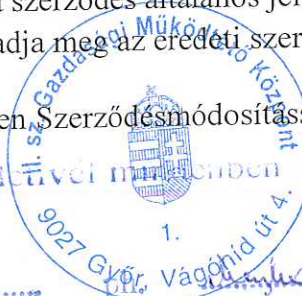 szerződés általános
adja meg az eredeti szer
en Szerződésmódosítás
II. sz. Gazdasági Működtető Központ
9027 Győr, Vágóhíd út 4.
1.